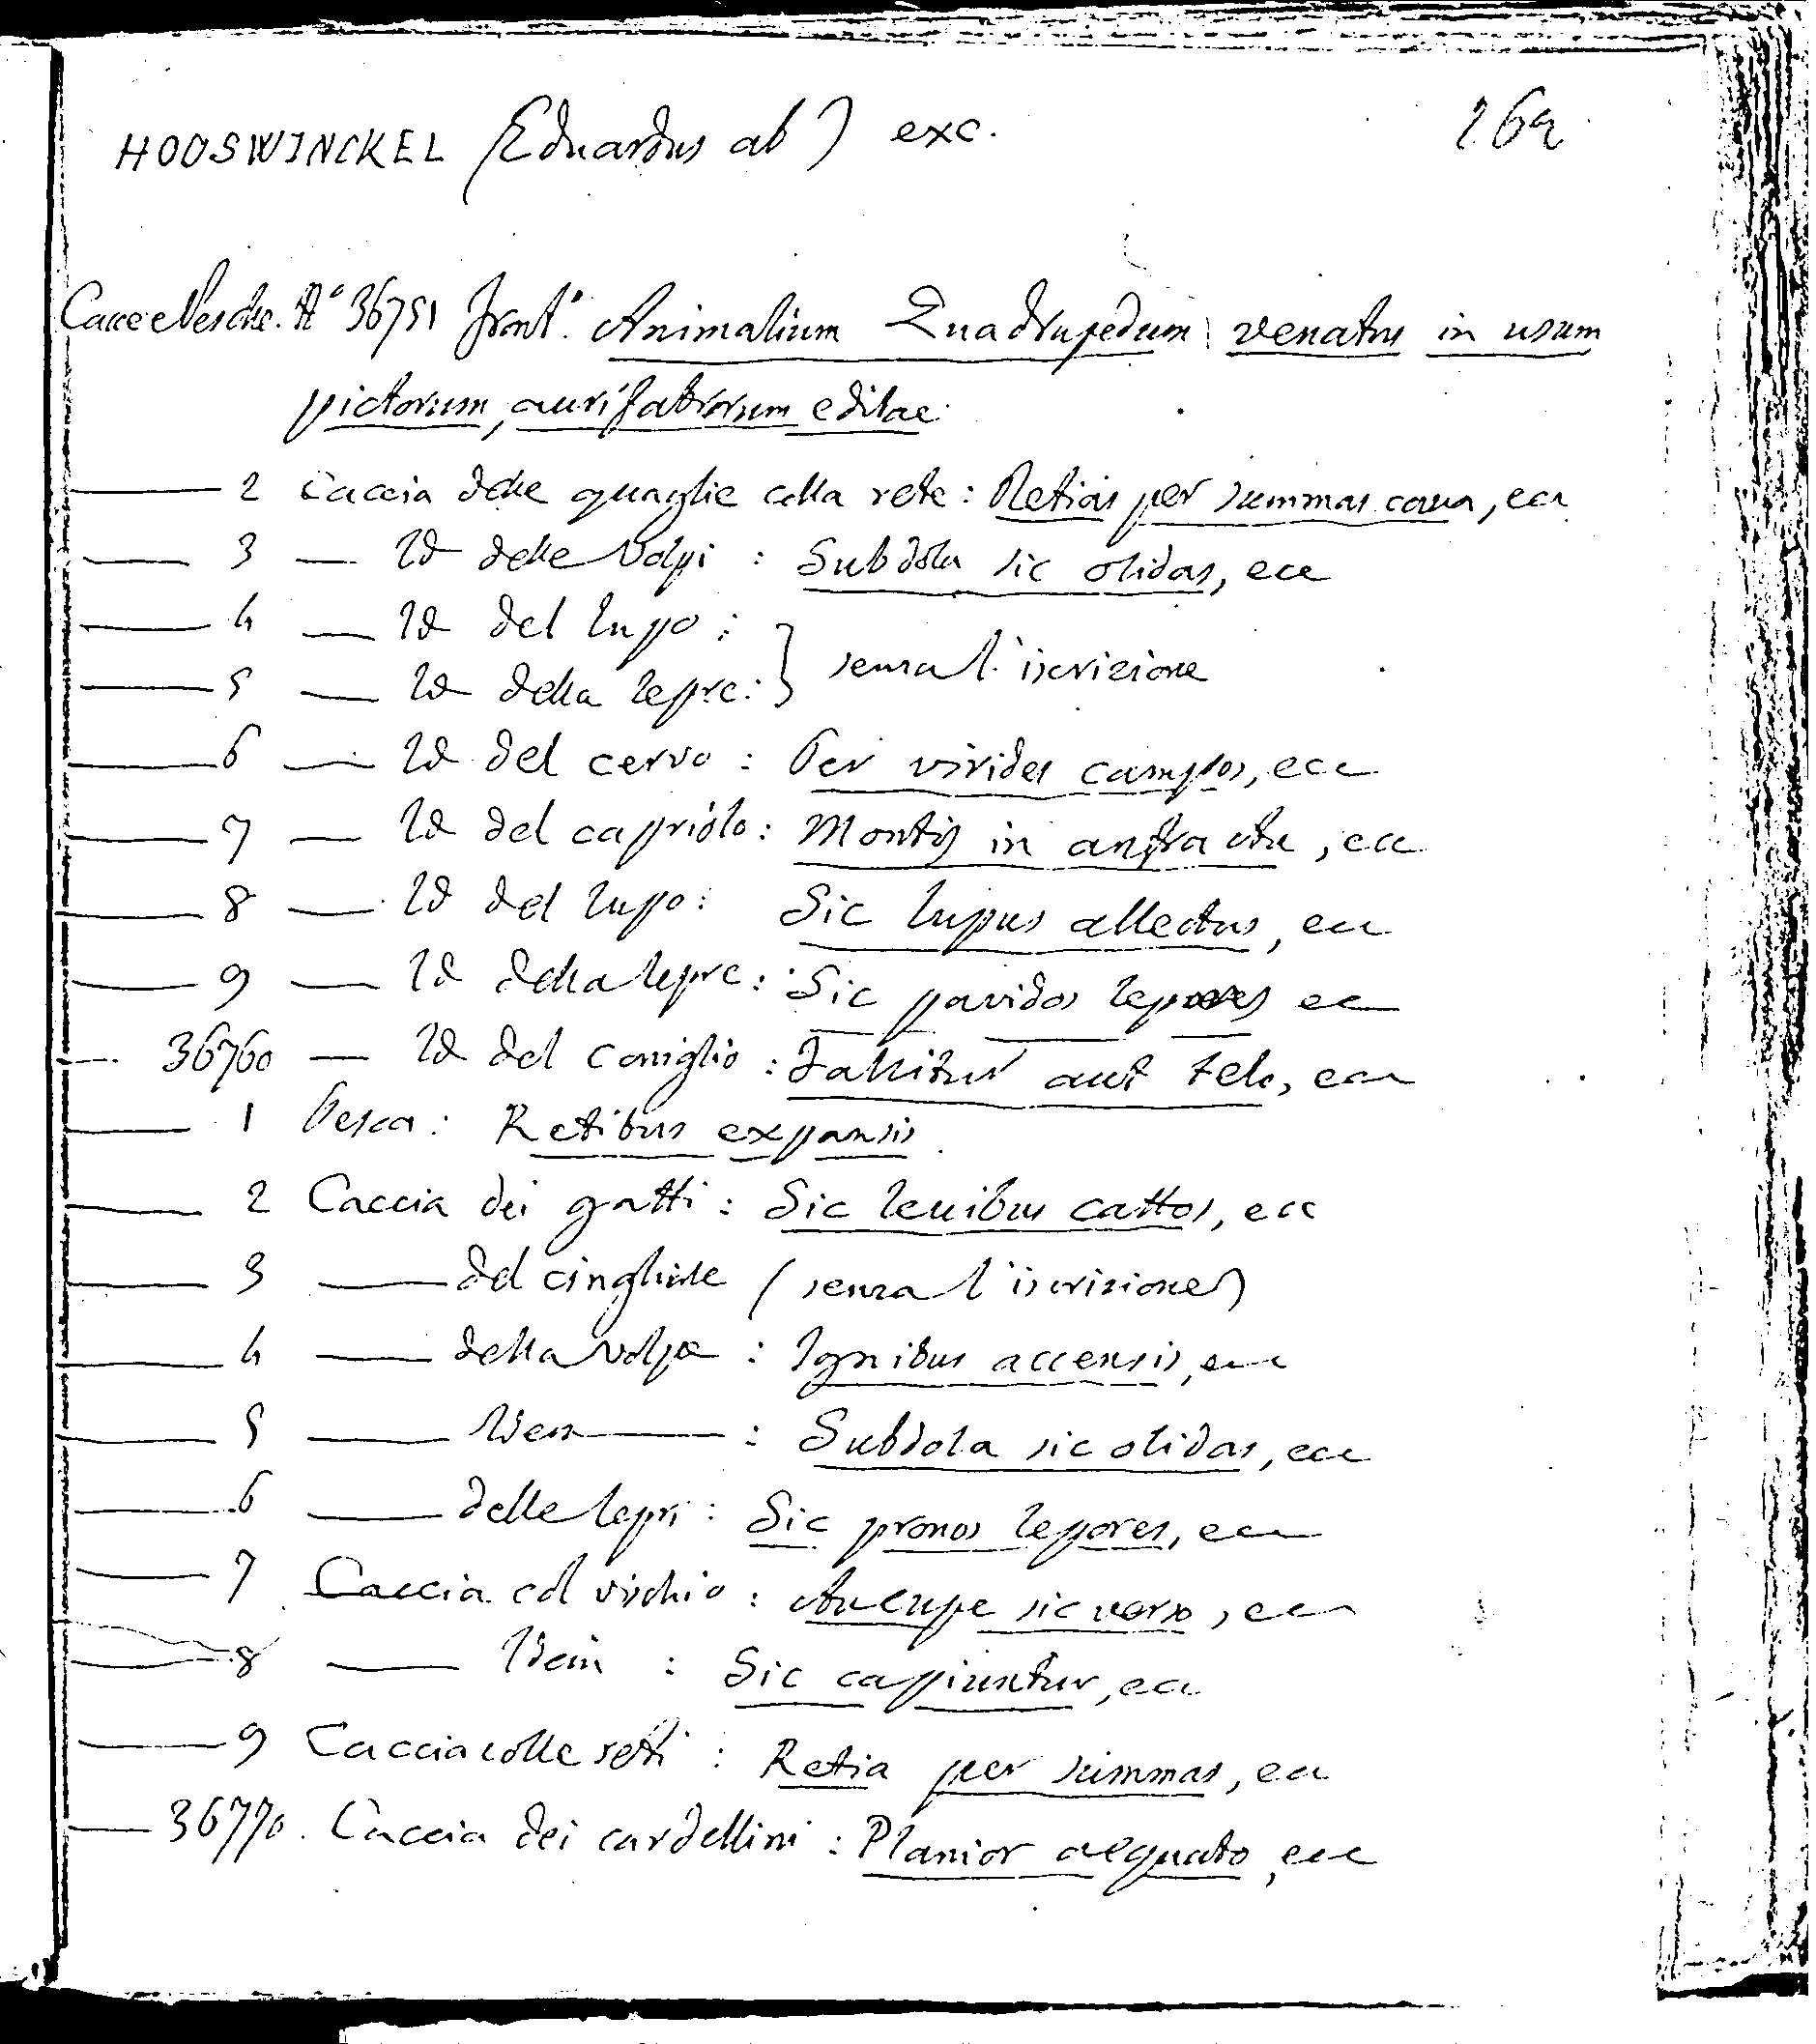 HOOSWINCKEL (Eduardus ab) exc. 169
Cacce e Pesche. N° 36751 Front.° Animalium Quadrupedum venatus in usum
pictorum, aurifabrorum editae
—— 2 Caccia delle quaglie colla rete: Retias per summas caua, ecc
—— 3 — Id delle Volpi : Subdola sic olidas, ecc
—— 4 — Id del lupo : } senza l'iscrizione
—— 5 — Id della lepre: }
—— 6 — Id del cervo : Per virides campos, ecc
—— 7 — Id del capriolo: Montis in anfractu, ecc
—— 8 — Id del lupo: Sic lupus allectus, ecc
—— 9 — Id della lepre: Sic pavidos lepores ecc
—— 36760 — Id del coniglio : Fallitur aut telo, ecc
—— 1 Pesca: Retibus expansis
—— 2 Caccia dei gatti : Sic leuibus cattos, ecc
—— 3 —— del cinghiale (senza l'iscrizione)
—— 4 —— della volpe : Ignibus accensis, ecc
—— 5 —— Idem —— : Subdola sic olidas, ecc
—— 6 —— delle lepri : Sic pronos lepores, ecc
—— 7 Caccia col vischio : Aucupe sic verso, ecc
—— 8 —— Idem : Sic capiuntur, ecc
—— 9 Caccia colle reti : Retia per summas, ecc
—— 36770. Caccia dei cardellini : Planior aequato, ecc